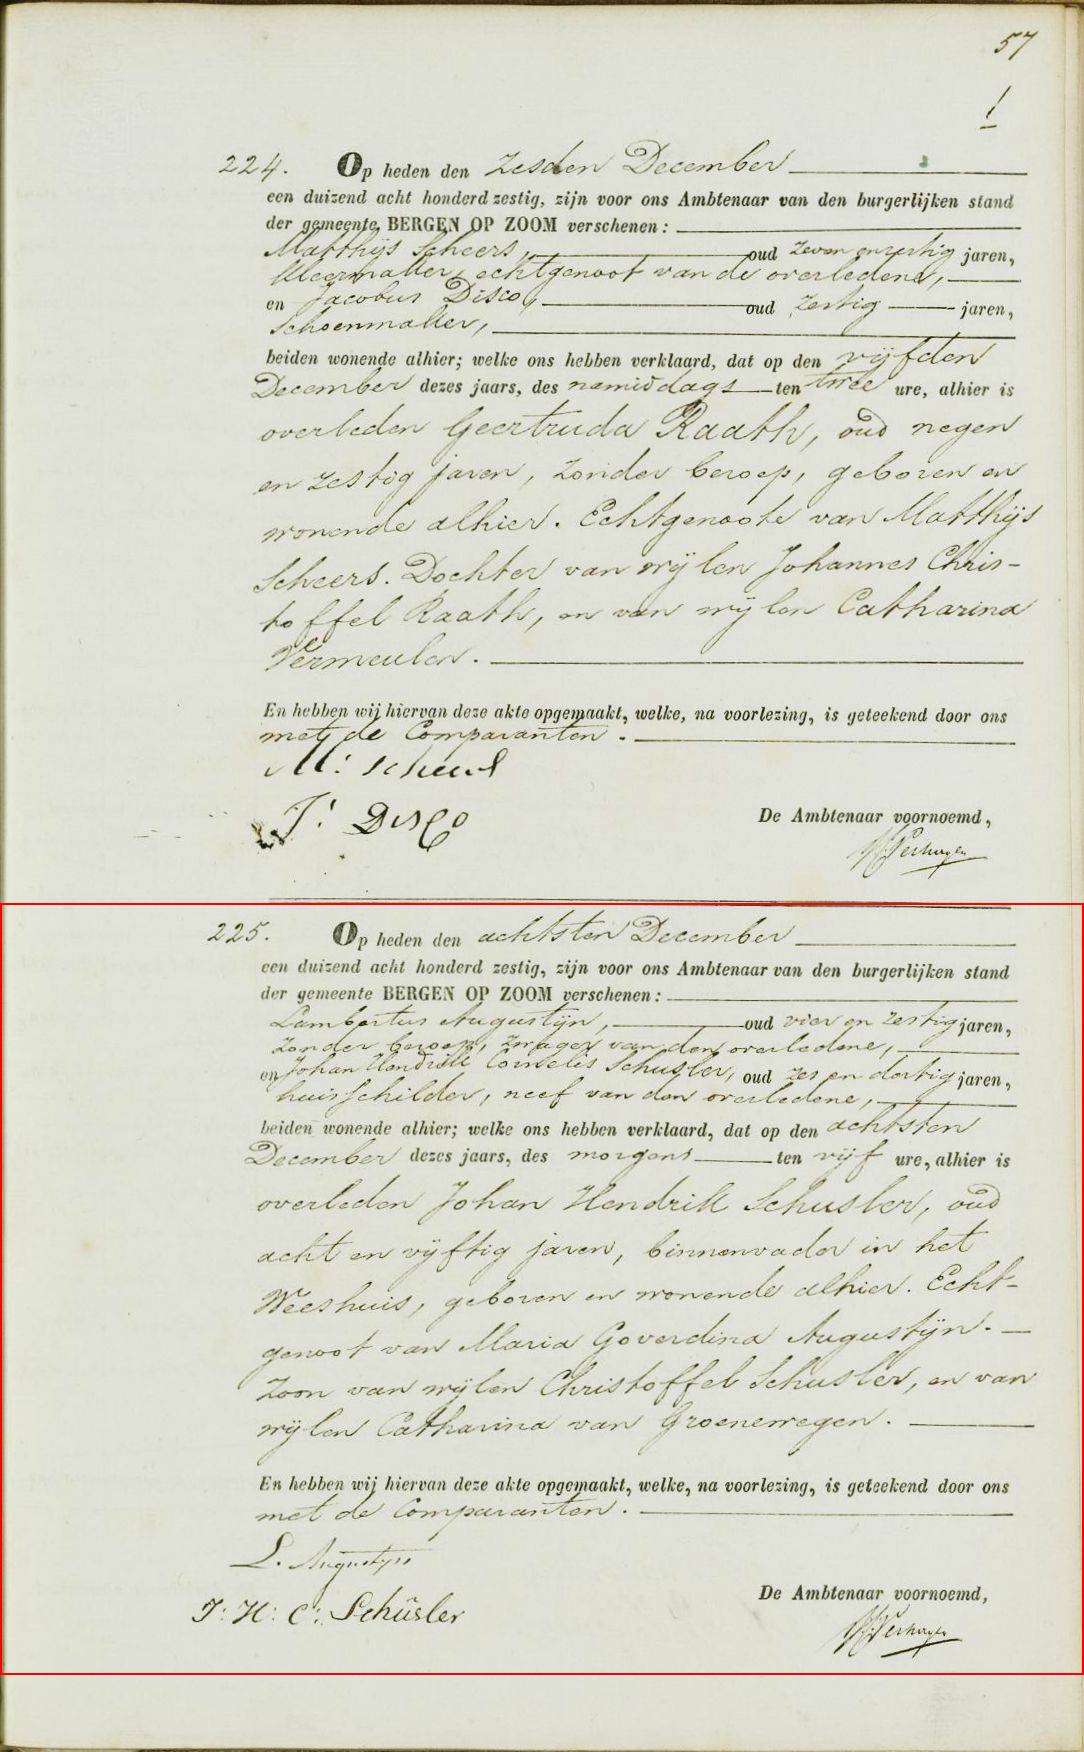 57
1
224. Op heden den Zesden December
een duizend acht honderd zestig, zijn voor ons Ambtenaar van den burgerlijken stand
der gemeente BERGEN OP ZOOM verschenen:
Matthijs Scheers, oud zeven en zestig jaren,
kleermaker, echtgenoot van de overledene,
en Jacobus Disco, oud zestig jaren,
Schoenmaker,
beiden wonende alhier; welke ons hebben verklaard, dat op den vijfden
December dezes jaars, des namiddags ten twee ure, alhier is
overleden Geertruda Raath, oud negen
en zestig jaren, zonder beroep, geboren en
wonende alhier. Echtgenoote van Matthijs
Scheers. Dochter van wijlen Johannes Chris-
toffel Raath, en van wijlen Catharina
Vermeulen.
En hebben wij hiervan deze akte opgemaakt, welke, na voorlezing, is geteekend door ons
met de Comparanten.
M: Scheers
J: Disco
De Ambtenaar voornoemd,
Verhagen
225. Op heden den achtsten December
een duizend acht honderd zestig, zijn voor ons Ambtenaar van den burgerlijken stand
der gemeente BERGEN OP ZOOM verschenen:
Lambertus Augustijn, oud vier en zestig jaren,
Zonder beroep, zwager van den overledene,
en Johan Hendrik Cornelis Schusler, oud zes en dertig jaren,
huisschilder, neef van den overledene,
beiden wonende alhier; welke ons hebben verklaard, dat op den achtsten
December dezes jaars, des morgens ten vijf ure, alhier is
overleden Johan Hendrik Schusler, oud
acht en vijftig jaren, binnenvader in het
Weeshuis, geboren en wonende alhier. Echt-
genoot van Maria Goverdina Augustijn.
Zoon van wijlen Christoffel Schusler, en van
wijlen Catharina van Groenewegen.
En hebben wij hiervan deze akte opgemaakt, welke, na voorlezing, is geteekend door ons
met de Comparanten.
L. Augustijn
J: H: C: Schüsler
De Ambtenaar voornoemd,
Verhagen